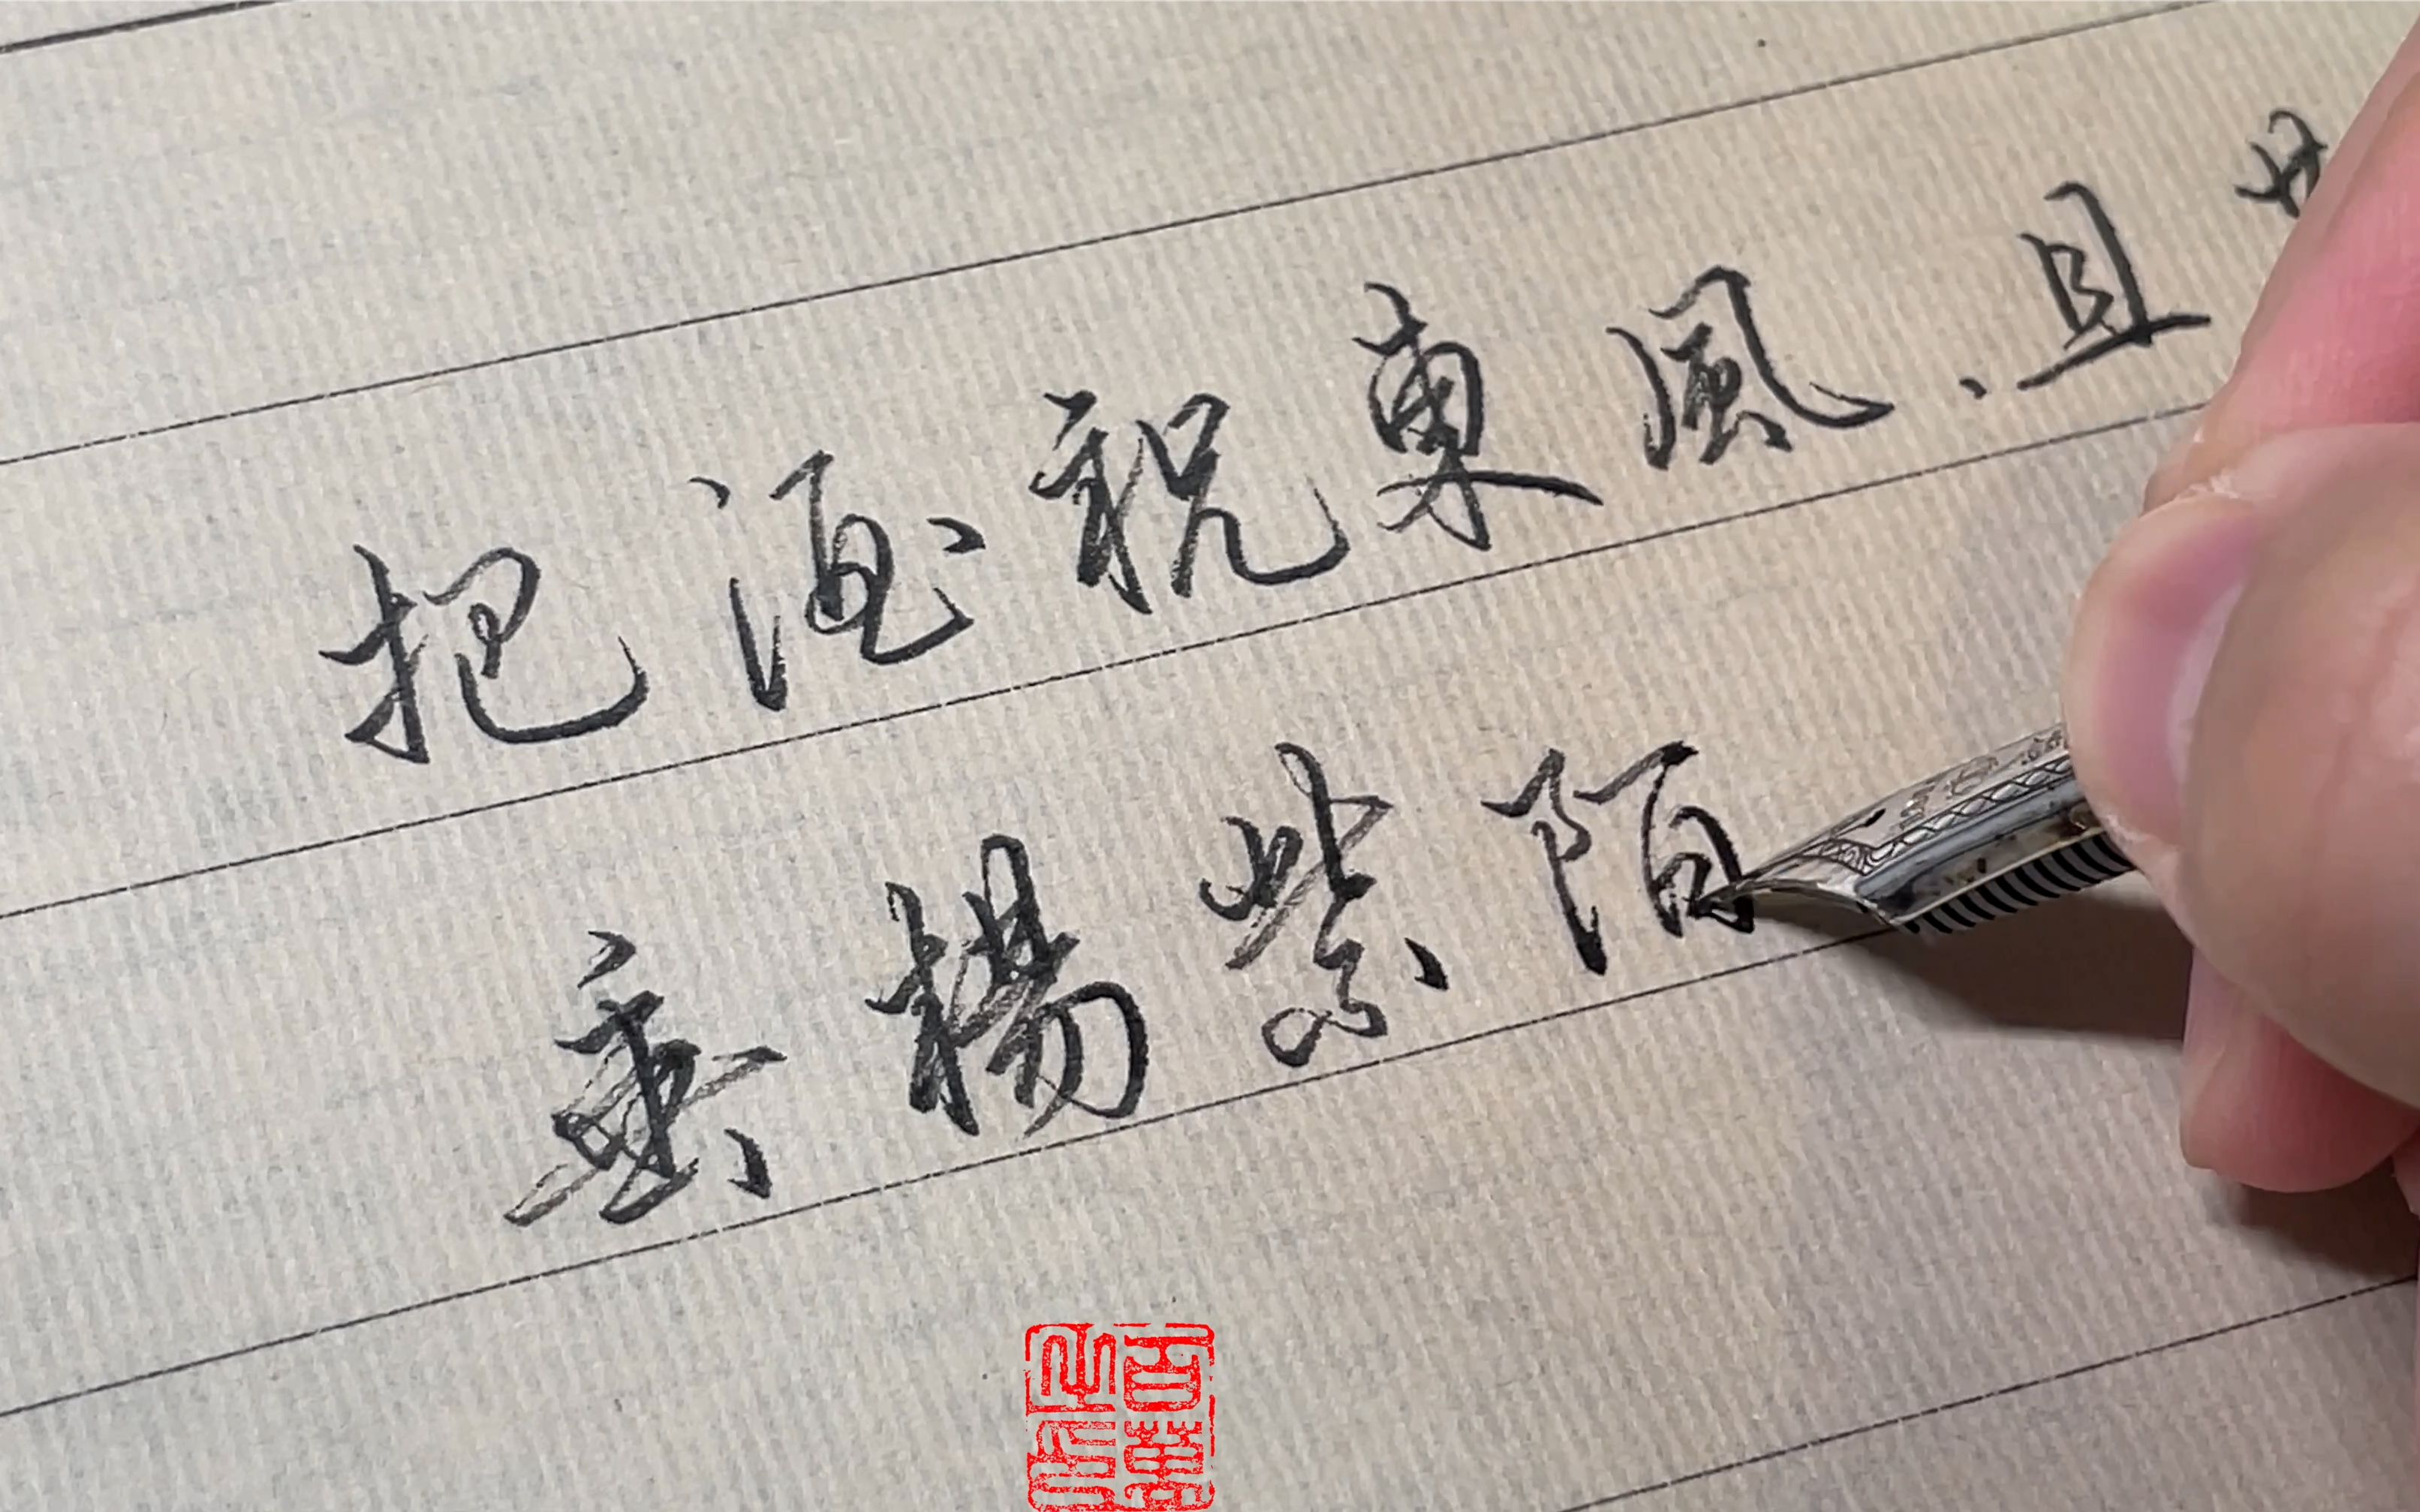 把酒祝東風.且
垂楊紫陌